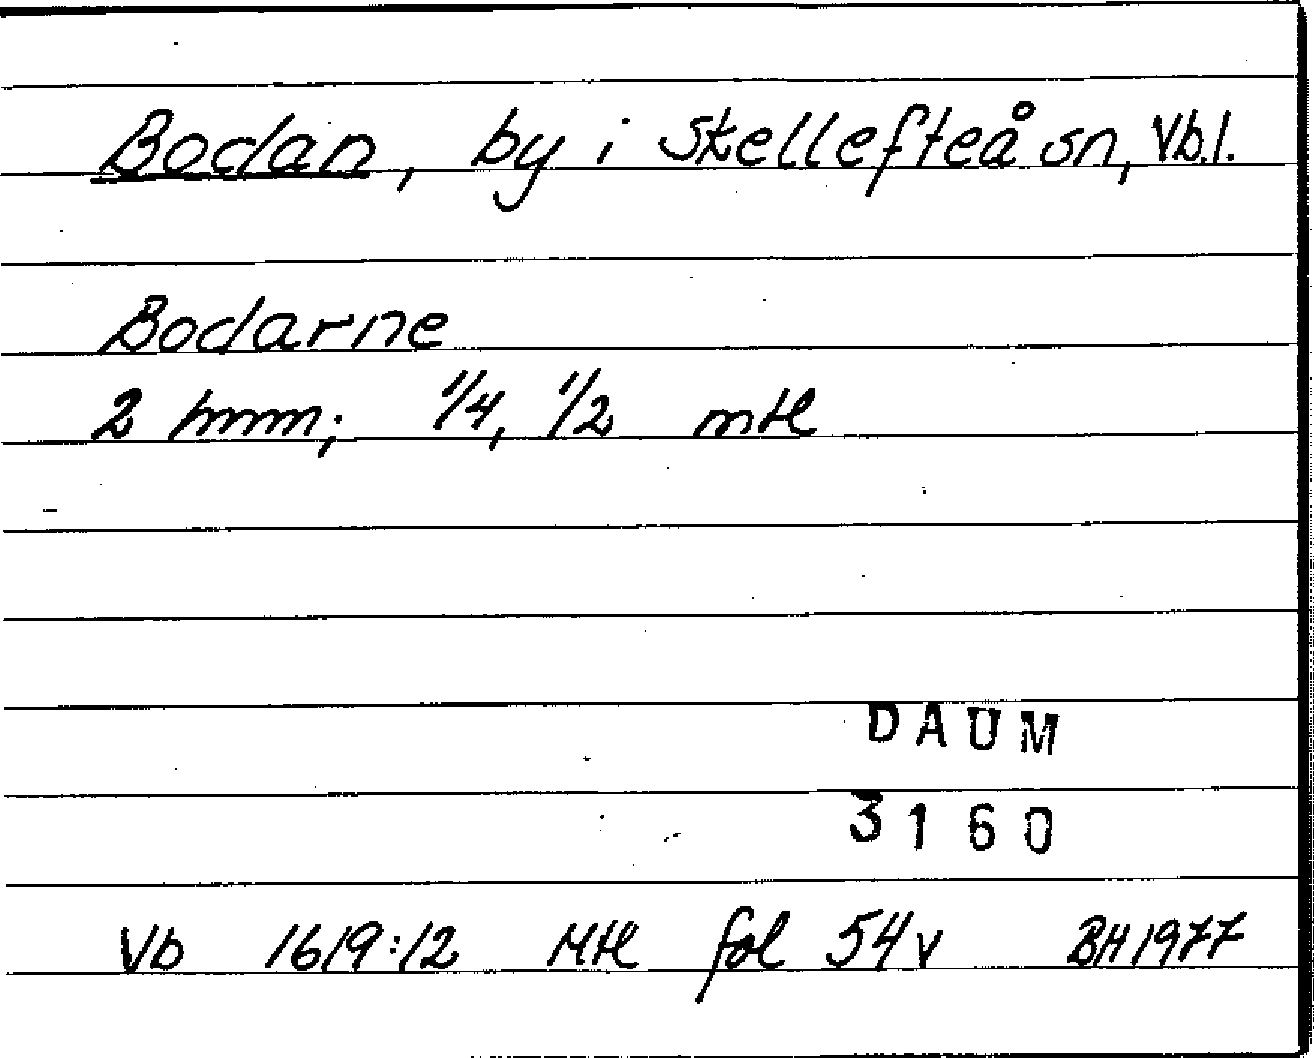 Bodan, by i Skellefteå sn, Vb.l.
Bodarne
2 hmm; 1/4, 1/2 mtl
DAUM
3160
Vb 1619:12 Mtl fol 54v BH 1977